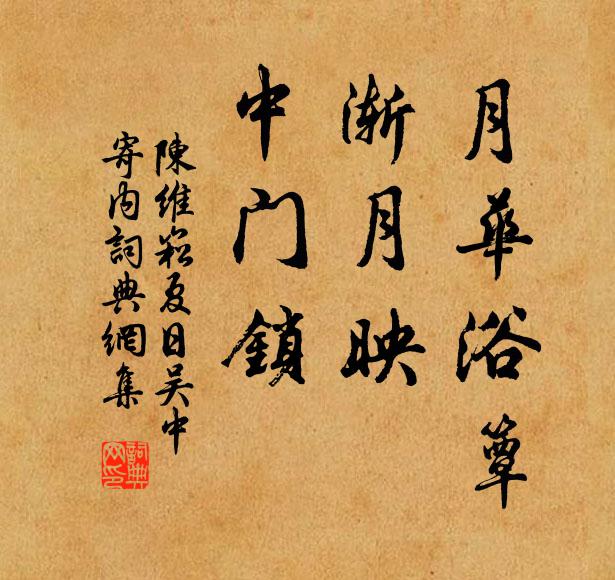 月華浴簟
漸月映
中门鎖
陳維崧夏日吴中
寄内詞典網集
詞典网印